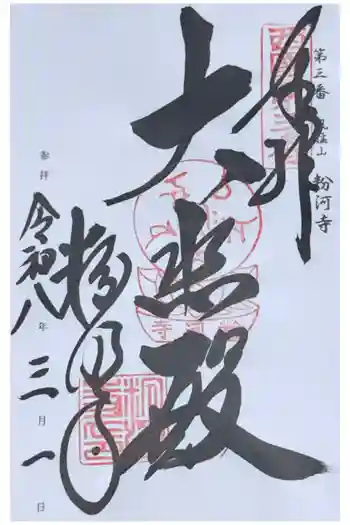 第三番 風猛山 粉河寺
奉拝
大悲殿
粉河寺
参拝
令和八年三月一日